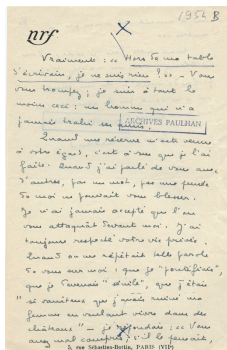 1954 B
nrf
Vraiment : « Hors de ma table
d'écrivain, je ne suis rien ! » — Vous
vous trompez ; je suis à tout le
moins ceci : un homme qui n'a
jamais trahi un ami.
ARCHIVES PAULHAN
Quand une réserve m'est venue
à votre égard, c'est à vous que je l'ai
faite. Quand j'ai parlé de vous avec
d'autres, pas un mot, pas une pensée
de moi ne pouvait vous blesser.
Je n'ai jamais accepté que l'on
vous attaquât devant moi. J'ai
toujours respecté votre vie privée.
Quand on me répétait telle parole
de vous sur moi : que je "pontifiais",
que je devenais "sénile", que j'étais
"si vaniteux que j'avais ruiné ma
femme en voulant vivre dans des
châteaux" — je répondais : « Vous
avez mal compris ; s'il le pensait,
5, rue Sébastien-Bottin, PARIS (VIIe)